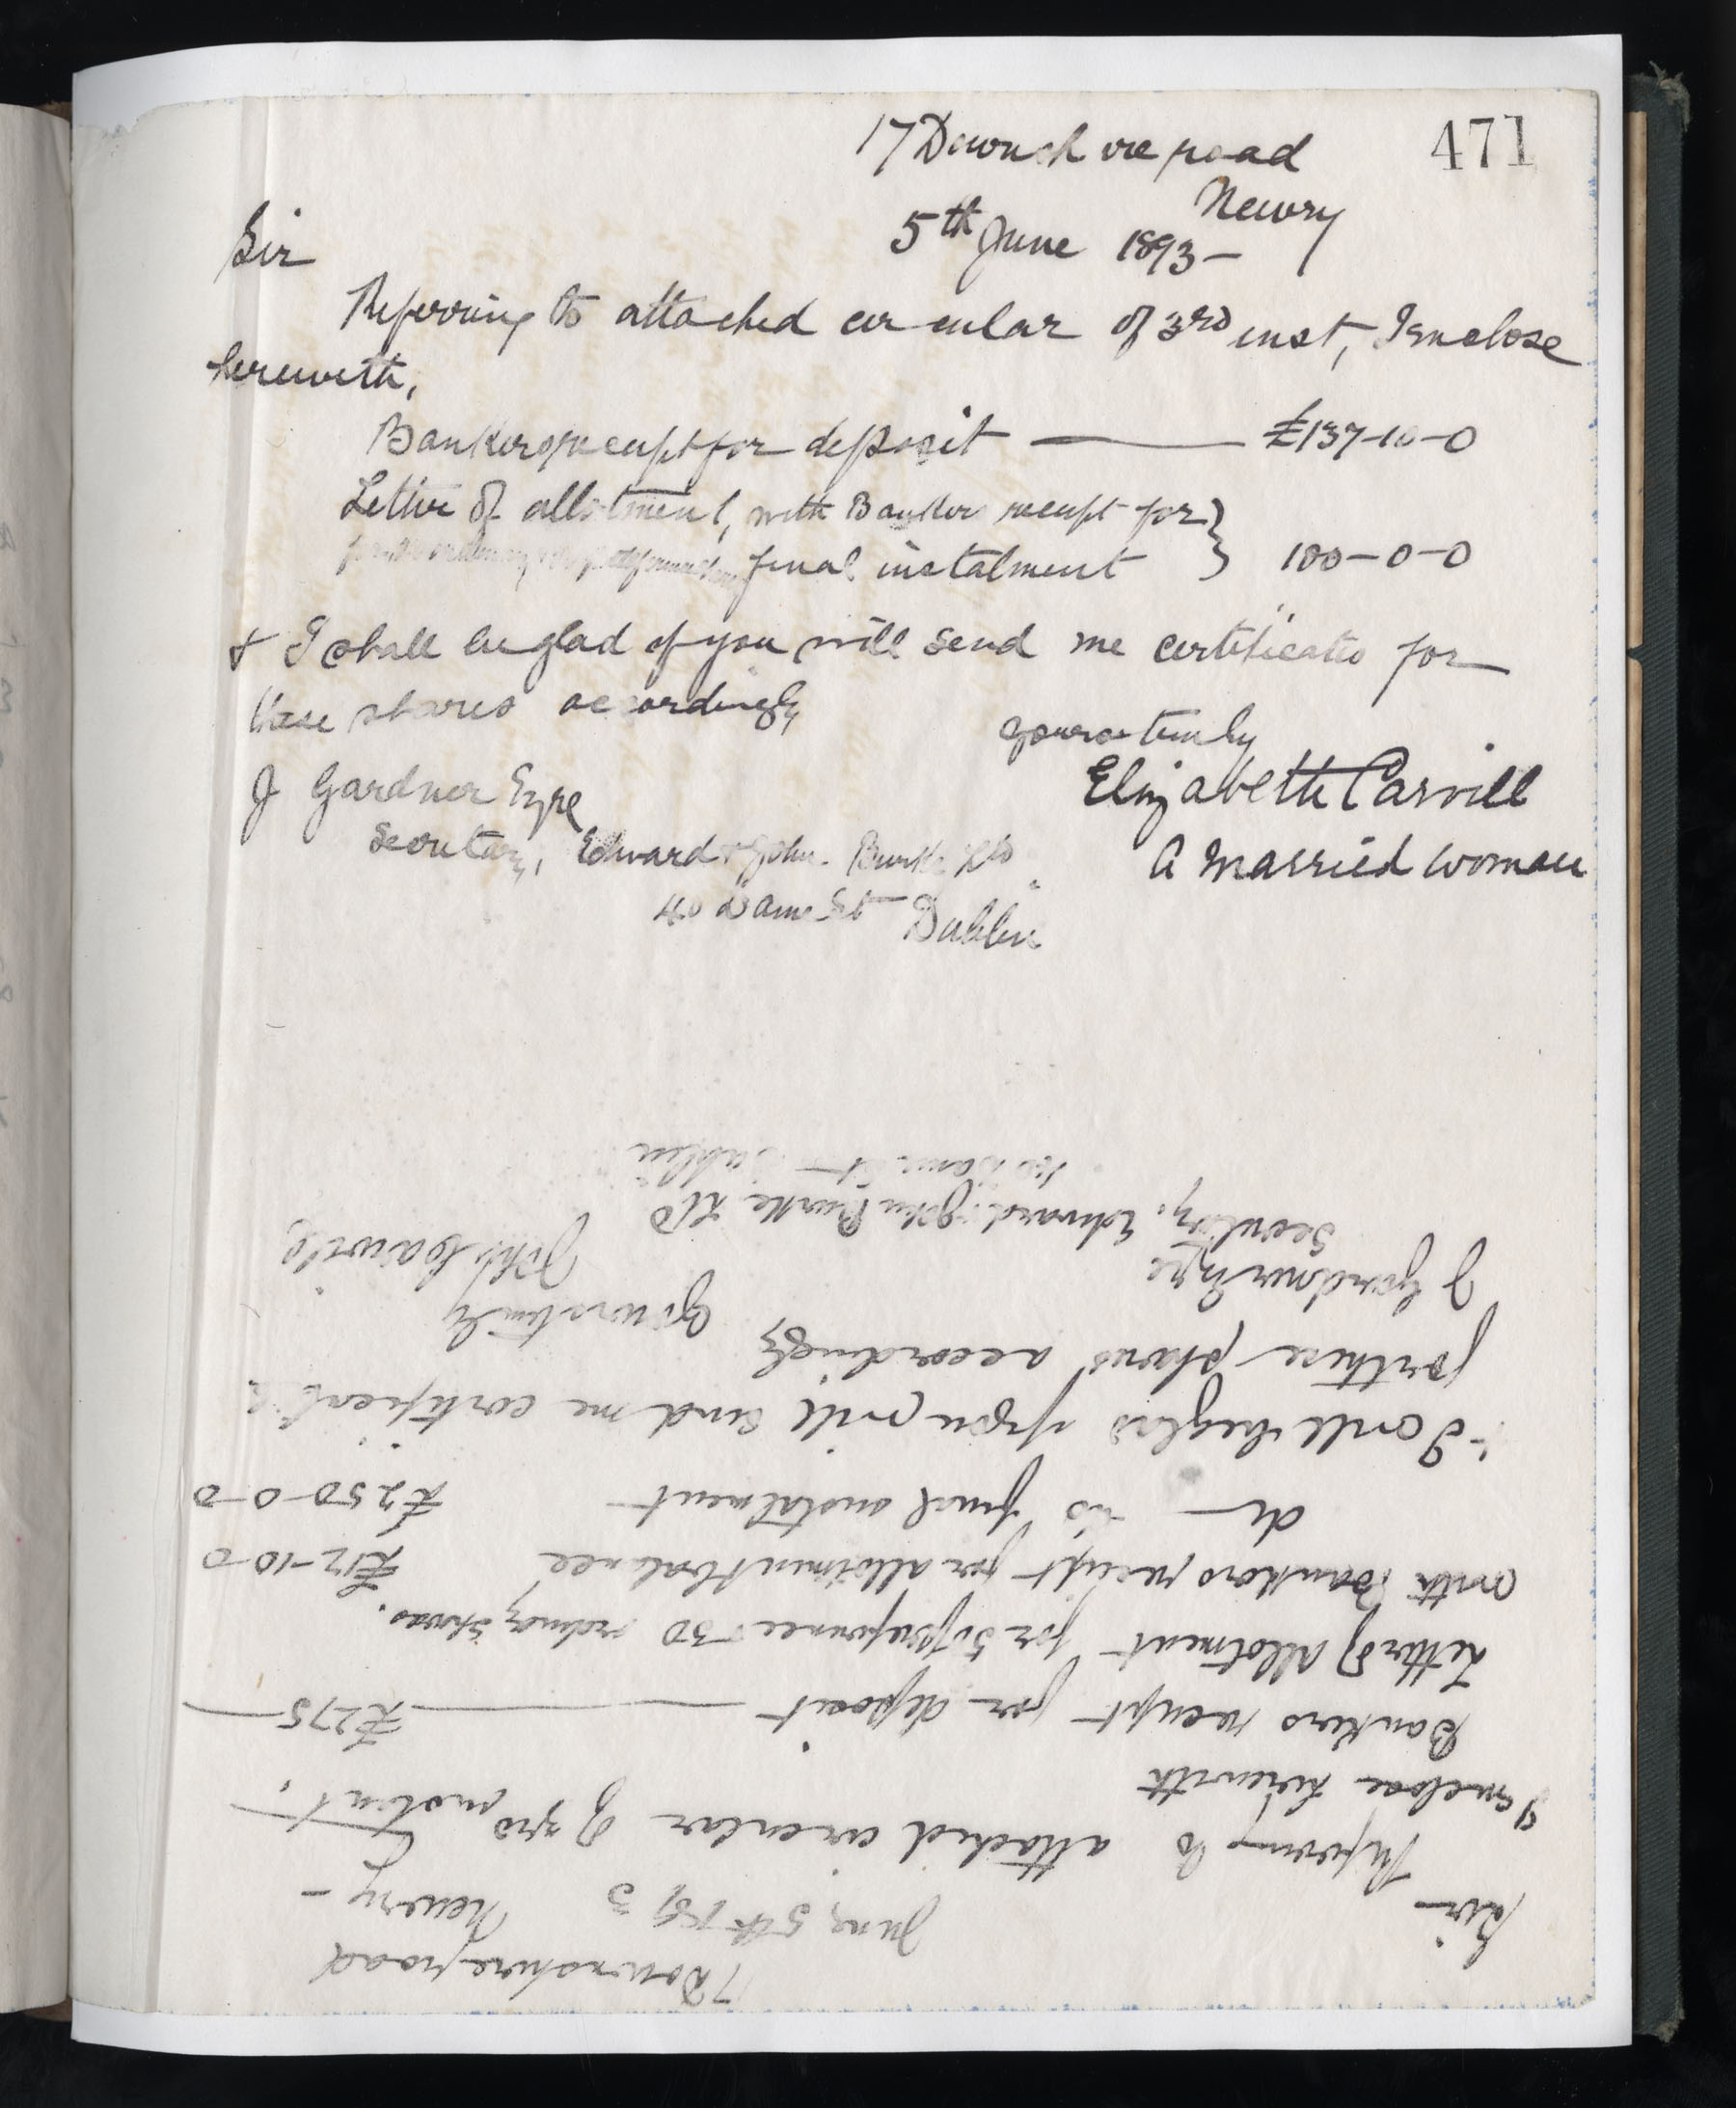 471
17 Downshire road
Newry
5th June 1893-
Sir
Referring to attached circular of 3rd inst, I enclose
herewith,
Bankers receipt for deposit £137-10-0
Letter of allotment, with Bankers receipt for
final instalment } 100-0-0
& I shall be glad if you will send me certificates for
these shares accordingly
yours truly
Elizabeth Carvill
A Married Woman
J Gardner Eyre
Secretary, Edward & John Burke Ltd
40 Dame St Dublin
17 Downshire road
June 5th 1893 Newry-
Sir
Referring to attached circular of 3rd instant,
I enclose herewith
Bankers receipt for deposit £275
Letter of allotment for 50 preference & 50 ordinary shares.
with Bankers receipt for allotment balance £12-10-0
do final instalment £250-0-0
& I will be glad if you will send me certificate
for these shares accordingly
Yours truly
J Gardner Eyre
Carvill
Secretary, Edward & John Burke Ltd
40 Dame St Dublin